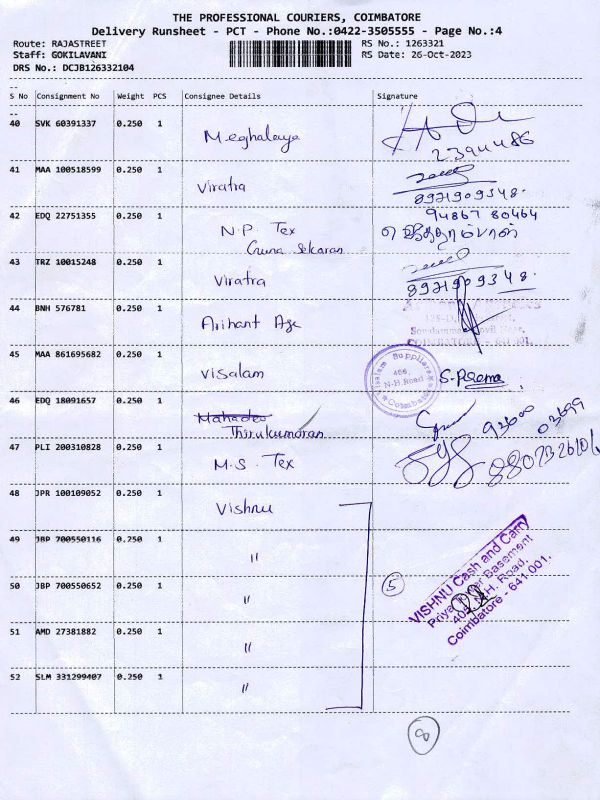 THE PROFESSIONAL COURIERS, COIMBATORE
Delivery Runsheet - PCT - Phone No.:0422-3505555 - Page No.:4
Route: RAJASTREET RS No.: 1263321
Staff: GOKILAVANI RS Date: 26-Oct-2023
DRS No.: DCJB126332104
S No Consignment No Weight PCS Consignee Details Signature
40 SVK 60391337 0.250 1 Meghalaya
2394486
41 MAA 100518599 0.250 1 Viratra
8921909348.
42 EDQ 22751355 0.250 1 N.P. Tex 94867 80464
Guna Sekaran
43 TRZ 10015248 0.250 1 Viratra
8921909348.
44 BNH 576781 0.250 1 Arihant Age
COIMBATORE - 641 001.
45 MAA 861695682 0.250 1 Visalam
Visalam Suppliers
466,
N-H.Road
Coimbatore
S. Prema
46 EDQ 18091657 0.250 1 Mahadev
Thirukumaran
93600 03699
47 PLI 200310828 0.250 1 M.S. Tex
48 JPR 100109052 0.250 1 Vishnu
49 JBP 700550116 0.250 1 "
50 JBP 700550652 0.250 1 "
5
VISHNU Cash and Carry
Basement
N.H. Road,
Coimbatore - 641 001.
51 AMD 27381882 0.250 1 "
52 SLM 331299407 0.250 1 "